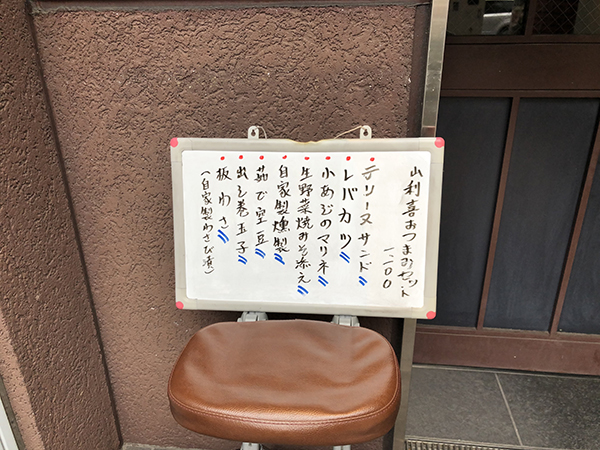 山利喜おつまみセット
一、一〇〇
テリーヌサンド
レバカツ
小あじのマリネ
生野菜焼みそ添え
自家製燻製
茹で空豆
出し巻玉子
板わさ
(自家製わさび漬)